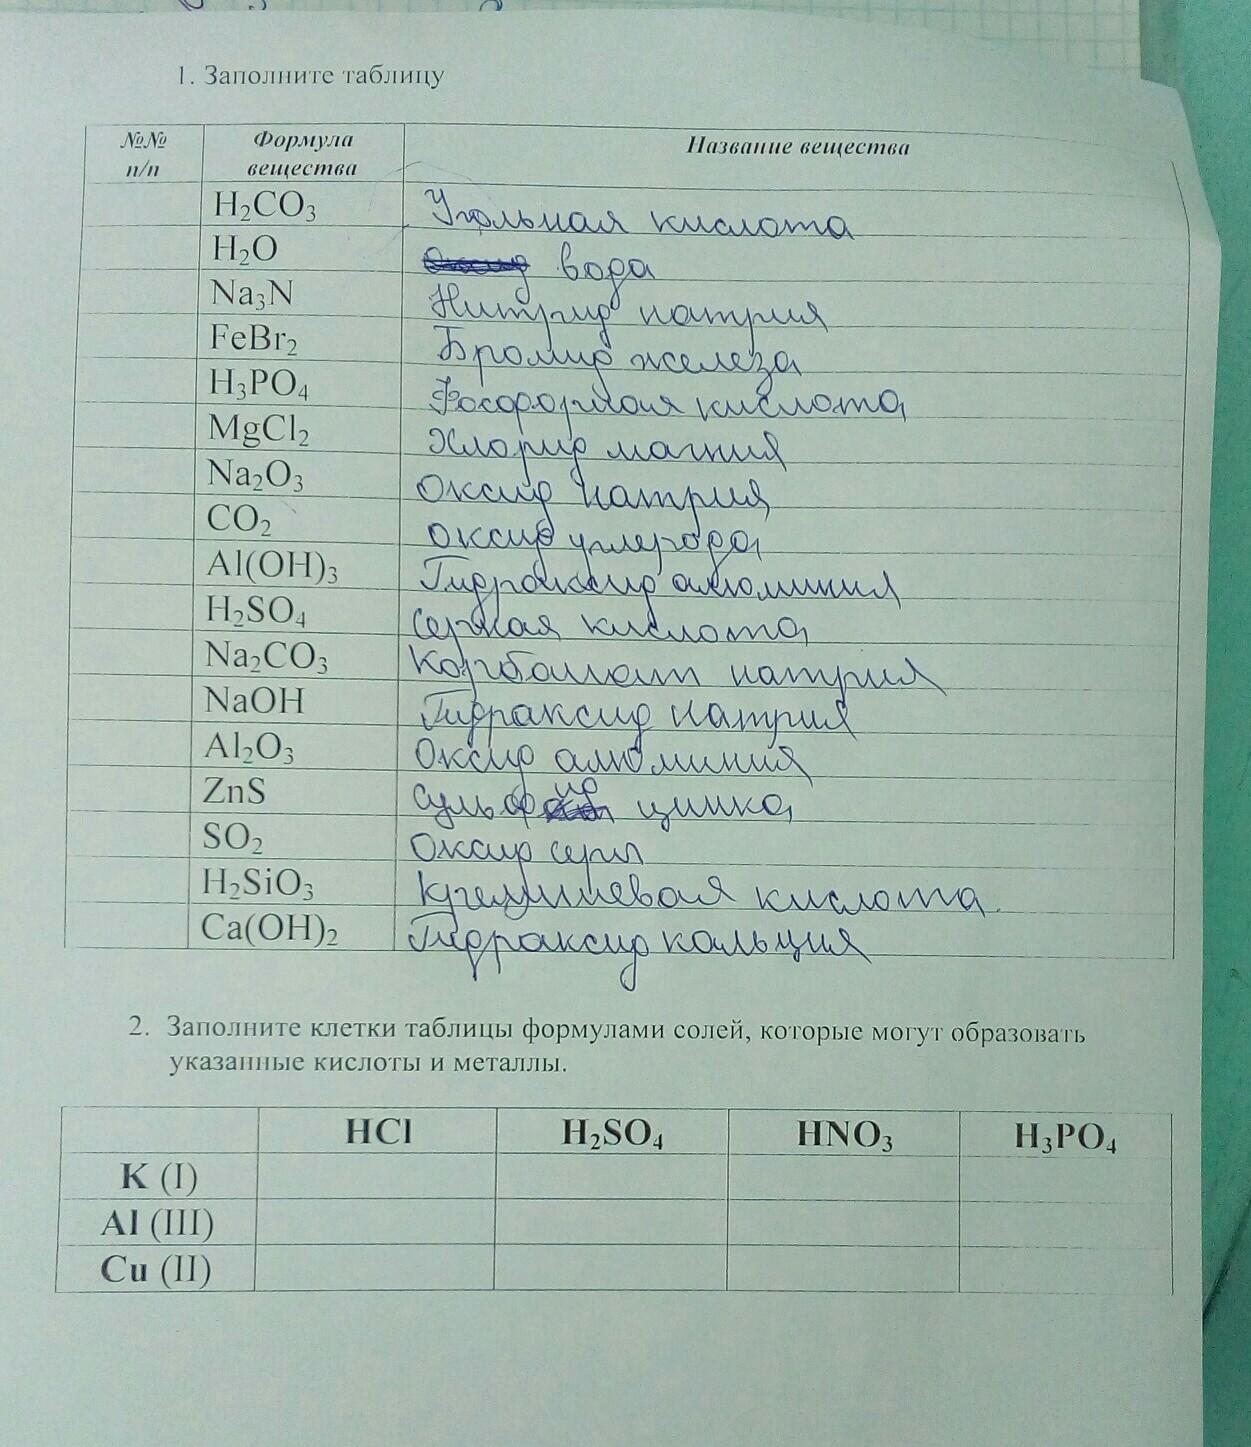 1. Заполните таблицу
№№ п/п Формула вещества Название вещества
H₂CO₃ Угольная кислота
H₂O вода
Na₃N Нитрид натрия
FeBr₂ Бромид железа
H₃PO₄ Фосфорная кислота
MgCl₂ Хлорид магния
Na₂O₃ Оксид натрия
CO₂ оксид углерода
Al(OH)₃ Гидраксид алюминия
H₂SO₄ серная кислота
Na₂CO₃ Карбонат натрия
NaOH Гидраксид натрия
Al₂O₃ Оксид алюминия
ZnS сульфид цинка
SO₂ Оксид серы
H₂SiO₃ Кремниевая кислота
Ca(OH)₂ Гидраксид кальция
2. Заполните клетки таблицы формулами солей, которые могут образовать
указанные кислоты и металлы.
HCl H₂SO₄ HNO₃ H₃PO₄
K (I)
Al (III)
Cu (II)